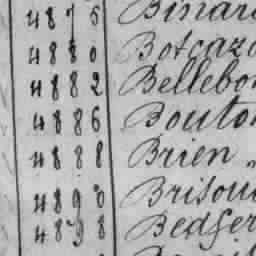 4875 Binar
4880 Botcazo
4882 Bellebon
4886 Bouton
4888 Brien „
4890 Brisou
4898 Bedfer